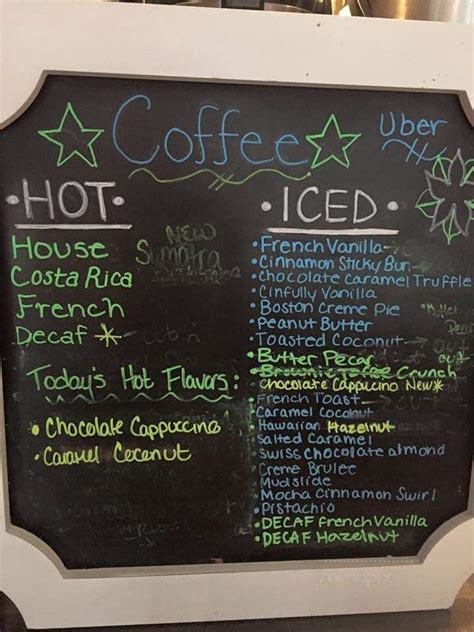 Coffee
Uber
•HOT•
House
Costa Rica
French
Decaf
NEW
Sumatra
Today's Hot Flavors:
• Chocolate Cappuccino
• Caramel Coconut
•ICED•
• French Vanilla
• Cinnamon Sticky Bun
• Chocolate Caramel Truffle
• Cinfully Vanilla
• Boston Creme Pie
• Peanut Butter
• Toasted Coconut
• Butter Pecan
• Brownie Tofee Crunch
• Chocolate Cappuccino New*
• French Toast
• Caramel Coconut
• Hawaiian Hazelnut
• Salted Caramel
• Swiss chocolate almond
• Creme Brulee
• Mudslide
• Mocha Cinnamon Swirl
• Pistachio
• DECAF French Vanilla
• DECAF Hazelnut